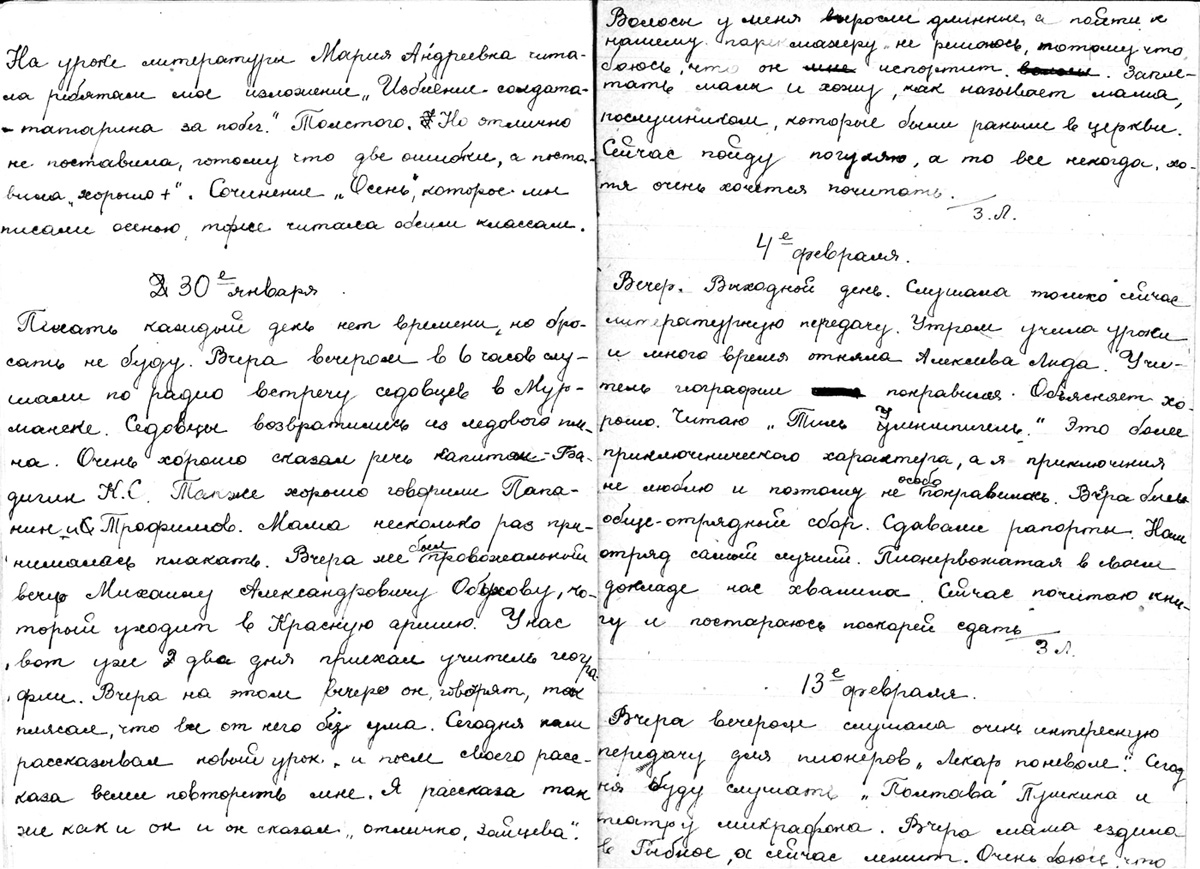 На уроке литературы Мария Андреевна чита-
ла ребятам мое изложение „Избиение солдата-
-татарина за побег." Толстого. Но отлично
не поставила, потому что две ошибки, а поста-
вила „хорошо+". Сочинение „Осень", которое мы
писали осенью, тоже читала обеим классам.
30е января.
Писать каждый день нет времени, но бро-
сать не буду. Вчера вечером в 6 часов слу-
шали по радио встречу седовцев в Мур-
манске. Седовцы возвратились из ледового пле-
на. Очень хорошо сказал речь капитан-Ба-
дигин К.С. Также хорошо говорили Папа-
нин и Трофимов. Мама несколько раз при-
нималась плакать. Вчера же был провожальный
вечер Михаилу Александровичу Обухову, ко-
торый уходит в Красную армию. У нас
вот уже два дня приехал учитель геогра
фии. Вчера на этом вечере он, говорят, так
плясал, что все от него без ума. Сегодня нам
рассказывал новый урок и после своего расс-
каза велел повторить мне. Я рассказа так
же как и он и он сказал „отлично, Зайцева".
Волосы у меня выросли длинные, а пойти к
нашему парикмахеру не решаюсь, потому что
боюсь, что он мне испортит волосы. Запле-
тать мала и хожу, как называет мама,
послушником, которые были раньше в церкви.
Сейчас пойду погуляю, а то все некогда, хо-
тя очень хочется почитать.
З.Л.
4е февраля.
Вечер. Выходной день. Слушала только сейчас
литературную передачу. Утром учила уроки
и много время отняла Алексева Лида. Учи-
тель географии понравился. Объясняет хо-
рошо. Читаю „Тиль Уленшпигель." Это более
приключенического характера, а я приключения
не люблю и поэтому не особо понравилось. Вчера был
обще-отрядный сбор. Сдавали рапорты. Наш
отряд самый лучший. Пионервожатая в своем
докладе нас хвалила. Сейчас почитаю кни-
гу и постараюсь поскорей сдать
З.Л.
13е февраля.
Вчера вечером слушала очень интересную
передачу для пионеров „Лекарь поневоле". Сегод
ня буду слушать „Полтава" Пушкина и
театр у микрафона. Вчера мама ездила
в Гибное, а сейчас лежит. Очень боюсь, что